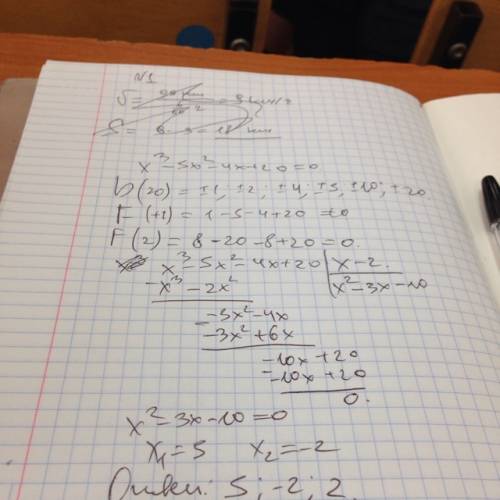 N1
x³-5x²-4x+20=0
D(20) = ±1, ±2; ±4; ±5, ±10; ±20
F(+1) = 1-5-4+20 ≠0
F(2) = 8-20-8+20=0.
x³-5x²-4x+20 | x-2
-x³-2x² x²-3x-10
-3x²-4x
-3x²+6x
-10x+20
-10x+20
0.
x²-3x-10=0
x₁=5 x₂=-2
5; -2; 2